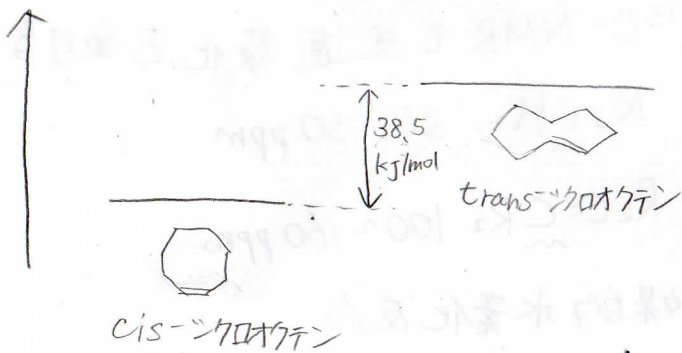 38.5
kJ/mol
trans-シクロオクテン
cis-シクロオクテン